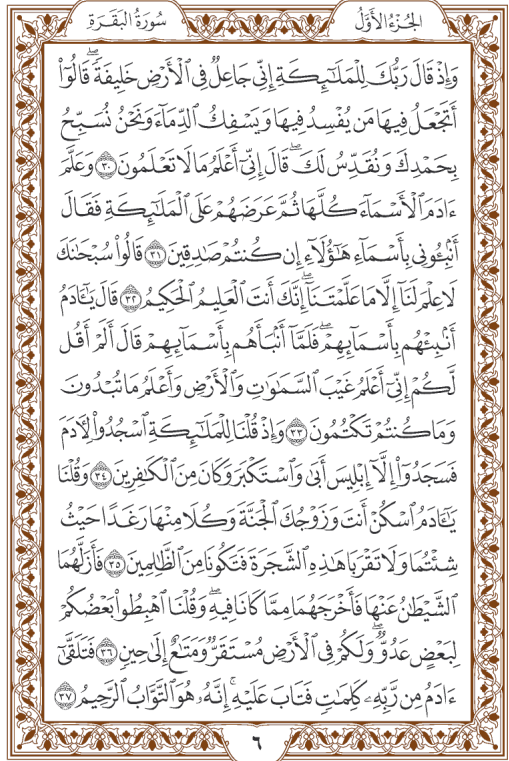 الجُزْءُ الأَوَّلُ
سُورَةُ البَقَرَةِ
وَإِذْ قَالَ رَبُّكَ لِلْمَلَٰٓئِكَةِ إِنِّى جَاعِلٌ فِى ٱلْأَرْضِ خَلِيفَةً ۖ قَالُوٓا۟
أَتَجْعَلُ فِيهَا مَن يُفْسِدُ فِيهَا وَيَسْفِكُ ٱلدِّمَآءَ وَنَحْنُ نُسَبِّحُ
بِحَمْدِكَ وَنُقَدِّسُ لَكَ ۖ قَالَ إِنِّىٓ أَعْلَمُ مَا لَا تَعْلَمُونَ ٣٠ وَعَلَّمَ
ءَادَمَ ٱلْأَسْمَآءَ كُلَّهَا ثُمَّ عَرَضَهُمْ عَلَى ٱلْمَلَٰٓئِكَةِ فَقَالَ
أَنۢبِـُٔونِى بِأَسْمَآءِ هَٰٓؤُلَآءِ إِن كُنتُمْ صَٰدِقِينَ ٣١ قَالُوا۟ سُبْحَٰنَكَ
لَا عِلْمَ لَنَآ إِلَّا مَا عَلَّمْتَنَآ ۖ إِنَّكَ أَنتَ ٱلْعَلِيمُ ٱلْحَكِيمُ ٣٢ قَالَ يَٰٓـَٔادَمُ
أَنۢبِئْهُم بِأَسْمَآئِهِمْ ۖ فَلَمَّآ أَنۢبَأَهُم بِأَسْمَآئِهِمْ قَالَ أَلَمْ أَقُل
لَّكُمْ إِنِّىٓ أَعْلَمُ غَيْبَ ٱلسَّمَٰوَٰتِ وَٱلْأَرْضِ وَأَعْلَمُ مَا تُبْدُونَ
وَمَا كُنتُمْ تَكْتُمُونَ ٣٣ وَإِذْ قُلْنَا لِلْمَلَٰٓئِكَةِ ٱسْجُدُوا۟ لِـَٔادَمَ
فَسَجَدُوٓا۟ إِلَّآ إِبْلِيسَ أَبَىٰ وَٱسْتَكْبَرَ وَكَانَ مِنَ ٱلْكَٰفِرِينَ ٣٤ وَقُلْنَا
يَٰٓـَٔادَمُ ٱسْكُنْ أَنتَ وَزَوْجُكَ ٱلْجَنَّةَ وَكُلَا مِنْهَا رَغَدًا حَيْثُ
شِئْتُمَا وَلَا تَقْرَبَا هَٰذِهِ ٱلشَّجَرَةَ فَتَكُونَا مِنَ ٱلظَّٰلِمِينَ ٣٥ فَأَزَلَّهُمَا
ٱلشَّيْطَٰنُ عَنْهَا فَأَخْرَجَهُمَا مِمَّا كَانَا فِيهِ ۖ وَقُلْنَا ٱهْبِطُوا۟ بَعْضُكُمْ
لِبَعْضٍ عَدُوٌّ ۖ وَلَكُمْ فِى ٱلْأَرْضِ مُسْتَقَرٌّ وَمَتَٰعٌ إِلَىٰ حِينٍ ٣٦ فَتَلَقَّىٰٓ
ءَادَمُ مِن رَّبِّهِۦ كَلِمَٰتٍ فَتَابَ عَلَيْهِ ۚ إِنَّهُۥ هُوَ ٱلتَّوَّابُ ٱلرَّحِيمُ ٣٧
٦